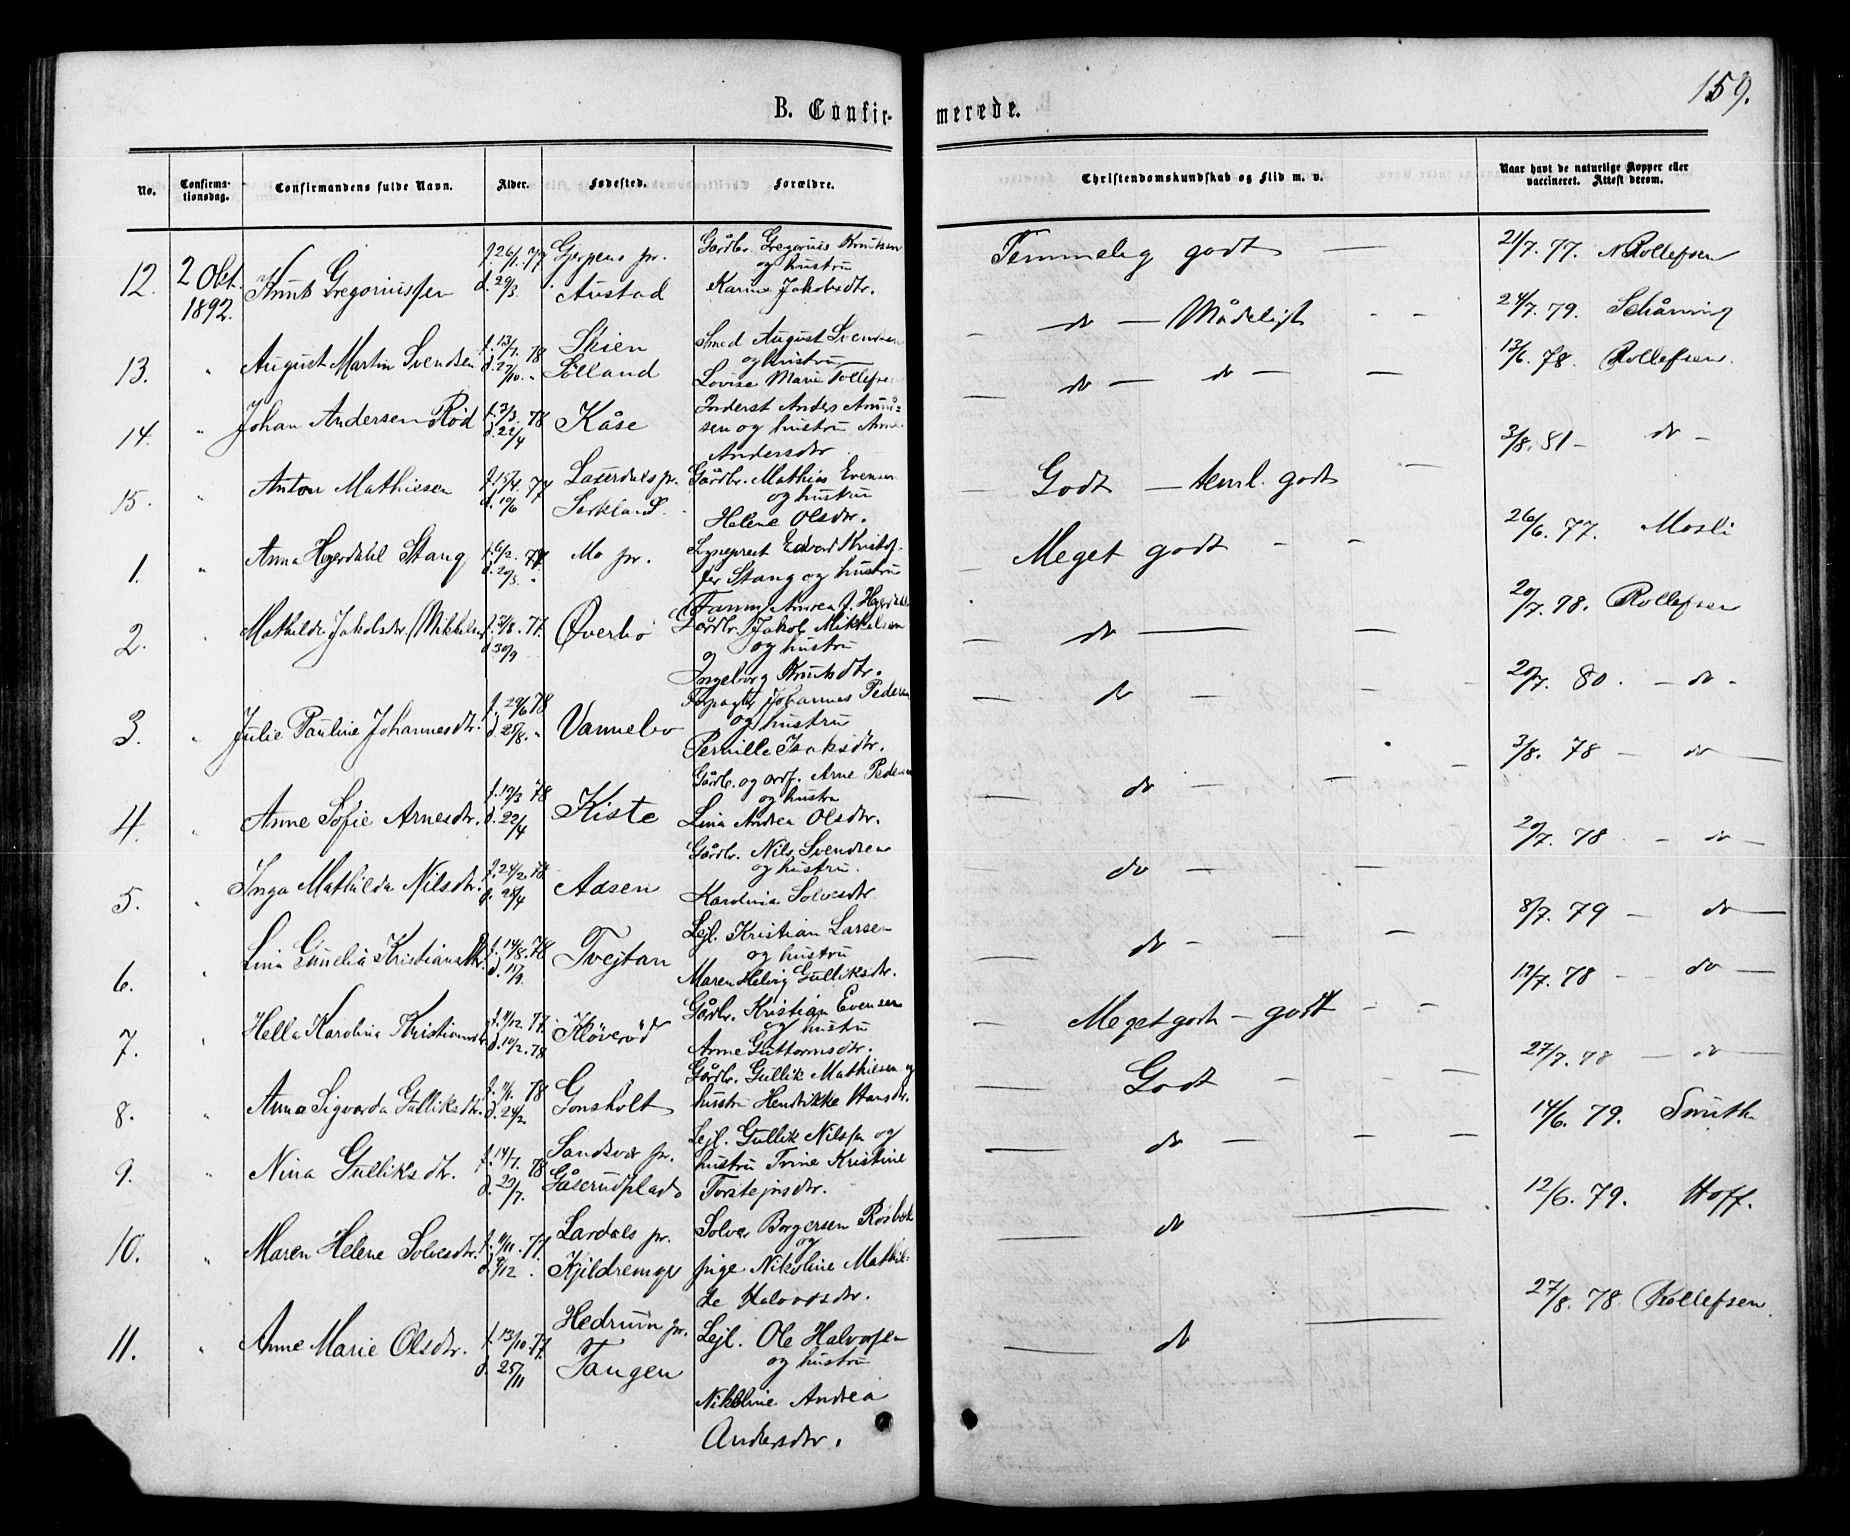 159.
B. Confirmerede.
No. Confirmationsdag. Confirmandens fulde Navn. Alder. Fødested. Forældre. Christendomskundskab og Flid m. v. Naar havt de naturlige Kopper eller vaccineret. Attest derom.
12. 2 Okt. 1892. Knut Gregoriussen f. 26/1. 77 d. 29/3. Gjerpens pr. Austad Gårdbr. Gregorius Knutsen og hustru Karine Jakobsdtr. Temmelig godt — 21/7. 77. N Rollefsen
13. " August Martin Svendsen f. 13/7. 78 d. 27/10. " Skien Sølland Smed August Svendsen og hustru Lovise Marie Tollefsen — do — Mådeligt - - 24/7. 79. Schåning
14. " Johan Andersen Rød f. 3/3. 78 d. 22/4 Kåse Inderst Anders Amundsen og hustru Anne Andersdtr — do — do — — 13/6. 78. Rollefsen.
15. " Anton Mathiesen f. 15/4. 77 d. 10/6 Laurdals pr. Gårdbr. Mathias Evensen og hustru Helene Olsdtr. — Godt — teml. godt — 3/8. 81 - do -
1. " Anna Hejerdahl Stang f. 6/2. 77 d. 20/3. " Mo pr. Sogneprest Edvard Kristoffer Stang og hustru Fanny Andrea J. Hejerdahl Meget godt - - 26/6. 77. Mosli
2. " Mathilde Jakobsdtr (Mikkelsen f. 2/8. 77. d. 30/9 Øverbø Gårdbr. Jakob Mikkelsen og hustru Ingeborg Knutsdtr. — do — — 20/7. 78. Rollefsen
3. " Julie Pauline Johannesdtr. f. 29/6 78 d. 25/8. " Vannebo Forpagter Johannes Pedersen og hustru Pernille Isaksdtr. — do - — - 20/7. 80. - do -
4. " Anne Sofie Arnesdtr. f. 19/3 78 d. 22/4 Kiste Gårdbr. og ordf. Arne Pedersen og hustru Lina Andrea Olsdtr. — do — — - 3/8. 78 - do —
5. " Inga Mathilda Nilsdtr. f. 24/2. 78 d. 28/4 Aasen Gårdbr. Nils Svendsen og hustru. Karolina Solvesdtr — do — — 20/7. 78 - do —
6. " Lina Gunelia Kristiansdtr. f. 14/8. 78 d. 15/9. Tvejtan Lejl. Kristian Larsen og hustru Maren Helvig Gulliksdtr. — do - — — 8/7. 79 — do —
7. " Hella Karolina Kristiansdtr f. 11/12. 77. d. 10/2. 78 Kløverød Gårdbr. Kristian Evensen og hustru Anne Guttormsdtr. — Meget godt - godt - - 13/7. 78 - - do —
8. " Anna Sigvarda Gulliksdtr. f. 11/1. 78 d. 24/2 Gonsholt Gårdbr. Gullik Mathiesen og hustru Hendrikke Hansdtr. — Godt - — - 27/7. 78 - do —
9. " Nina Gulliksdtr. f. 14/7. 78 d. 29/7. Sandsvær pr. Gåserudplads Lejl. Gullik Nilssen og hustru Trine Kristine Torstejnsdtr. — do — - — 14/6. 79. Smith
10. " Maren Helene Solvesdtr. f. 11/11. 77. d. 9/12. Lardals pr. Solve Borgersen og pige Nikoline Mathilde Halvorsdtr. — do — 12/6. 79. Hoff.
11. " Anne Marie Olsdtr. f. 13/10. 77. d. 25/11 Hedrum pr. Tangen Lejl. Ole Halvorsen og hustru Nikoline Andrea Andersdtr. — do — 27/8. 78 Rollefsen.